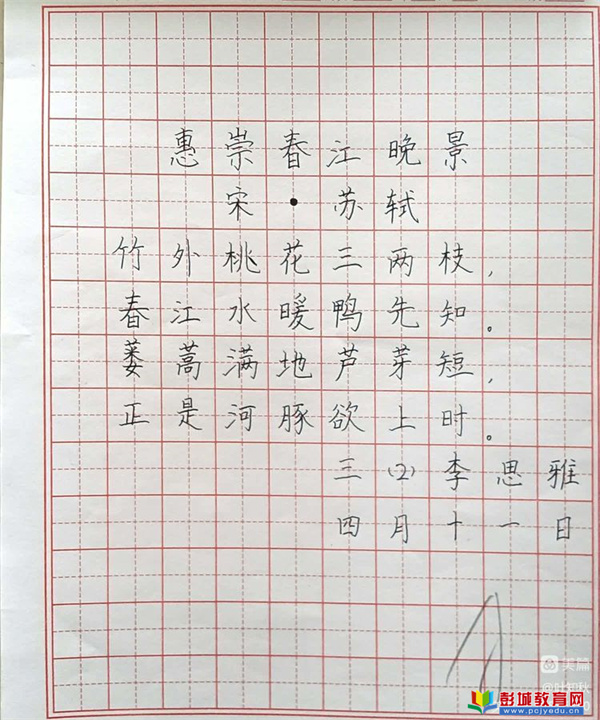 惠崇春江晚景
宋·苏轼
竹外桃花三两枝，
春江水暖鸭先知。
蒌蒿满地芦芽短，
正是河豚欲上时。
三(2)李思雅
四月十一日
美篇
彭城教育网
www.pcjyedu.cn